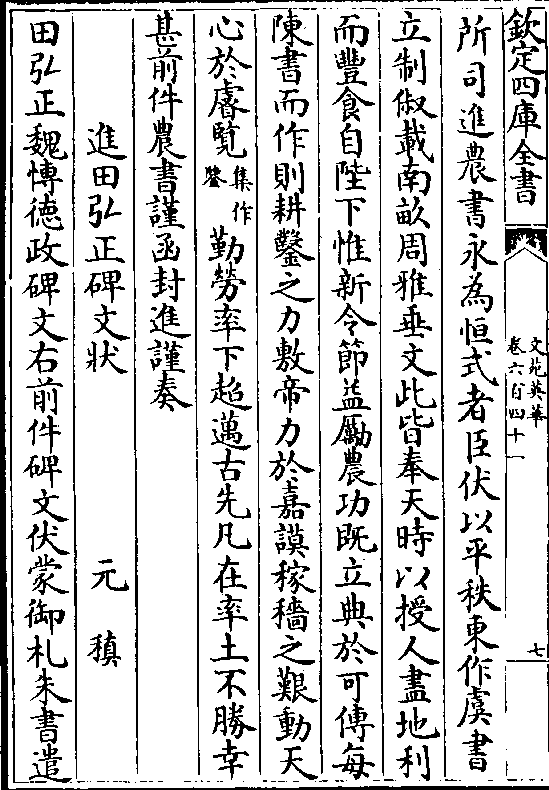 欽定四庫全書
文苑英華
卷六百四十一
七
所司進農書永為恒式者臣伏以平秩東作虞書
立制俶載南畝周雅垂文此皆奉天時以授人盡地利
而豐食自陛下惟新令節益勵農功既立典於可傳每
陳書而作則耕鑿之力敷帝力於嘉謨稼穡之艱動天
心於睿覽集作鑒勤勞率下超邁古先凡在率土不勝幸
甚前件農書謹函封進謹奏
進田弘正碑文狀 元稹
田弘正魏博德政碑文右前件碑文伏蒙御札朱書遣